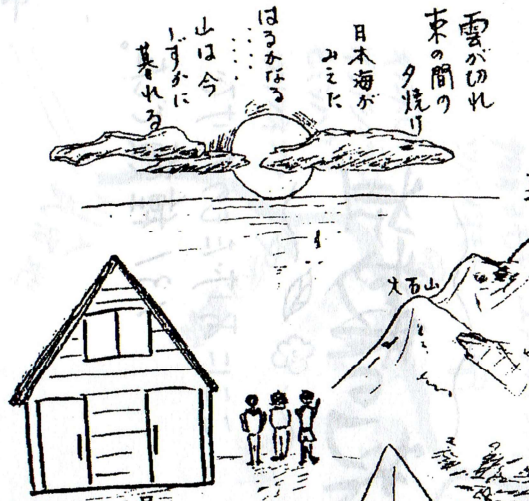 雲が切れ
束の間の
夕焼け
日本海が
みえた
はるかなる
‥‥‥
山は今
しずかに
暮れる
大石山